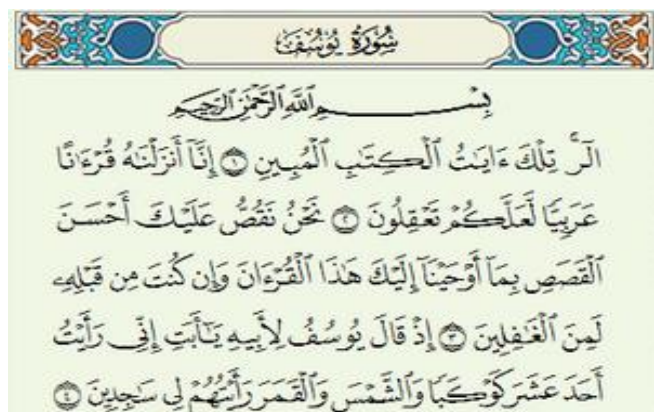 سُورَةُ يُوسُفَ
بِسْمِ ٱللَّهِ ٱلرَّحْمَٰنِ ٱلرَّحِيمِ
الٓر تِلْكَ ءَايَٰتُ ٱلْكِتَٰبِ ٱلْمُبِينِ ١ إِنَّآ أَنزَلْنَٰهُ قُرْءَٰنًا
عَرَبِيًّا لَّعَلَّكُمْ تَعْقِلُونَ ٢ نَحْنُ نَقُصُّ عَلَيْكَ أَحْسَنَ
ٱلْقَصَصِ بِمَآ أَوْحَيْنَآ إِلَيْكَ هَٰذَا ٱلْقُرْءَانَ وَإِن كُنتَ مِن قَبْلِهِۦ
لَمِنَ ٱلْغَٰفِلِينَ ٣ إِذْ قَالَ يُوسُفُ لِأَبِيهِ يَٰٓأَبَتِ إِنِّى رَأَيْتُ
أَحَدَ عَشَرَ كَوْكَبًا وَٱلشَّمْسَ وَٱلْقَمَرَ رَأَيْتُهُمْ لِى سَٰجِدِينَ ٤